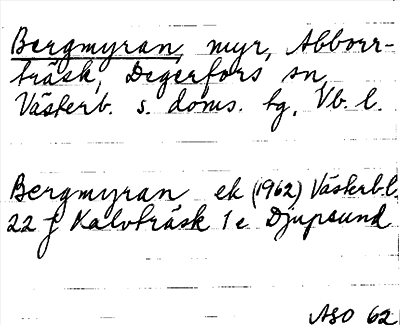 Bergmyran, myr, Abborr-
träsk, Degerfors sn,
Västerb. s. doms. tg, Vb. l.
Bergmyran ek (1962) Västerb.l.
22 f Kalvträsk 1 e Djupsund
ASO 62